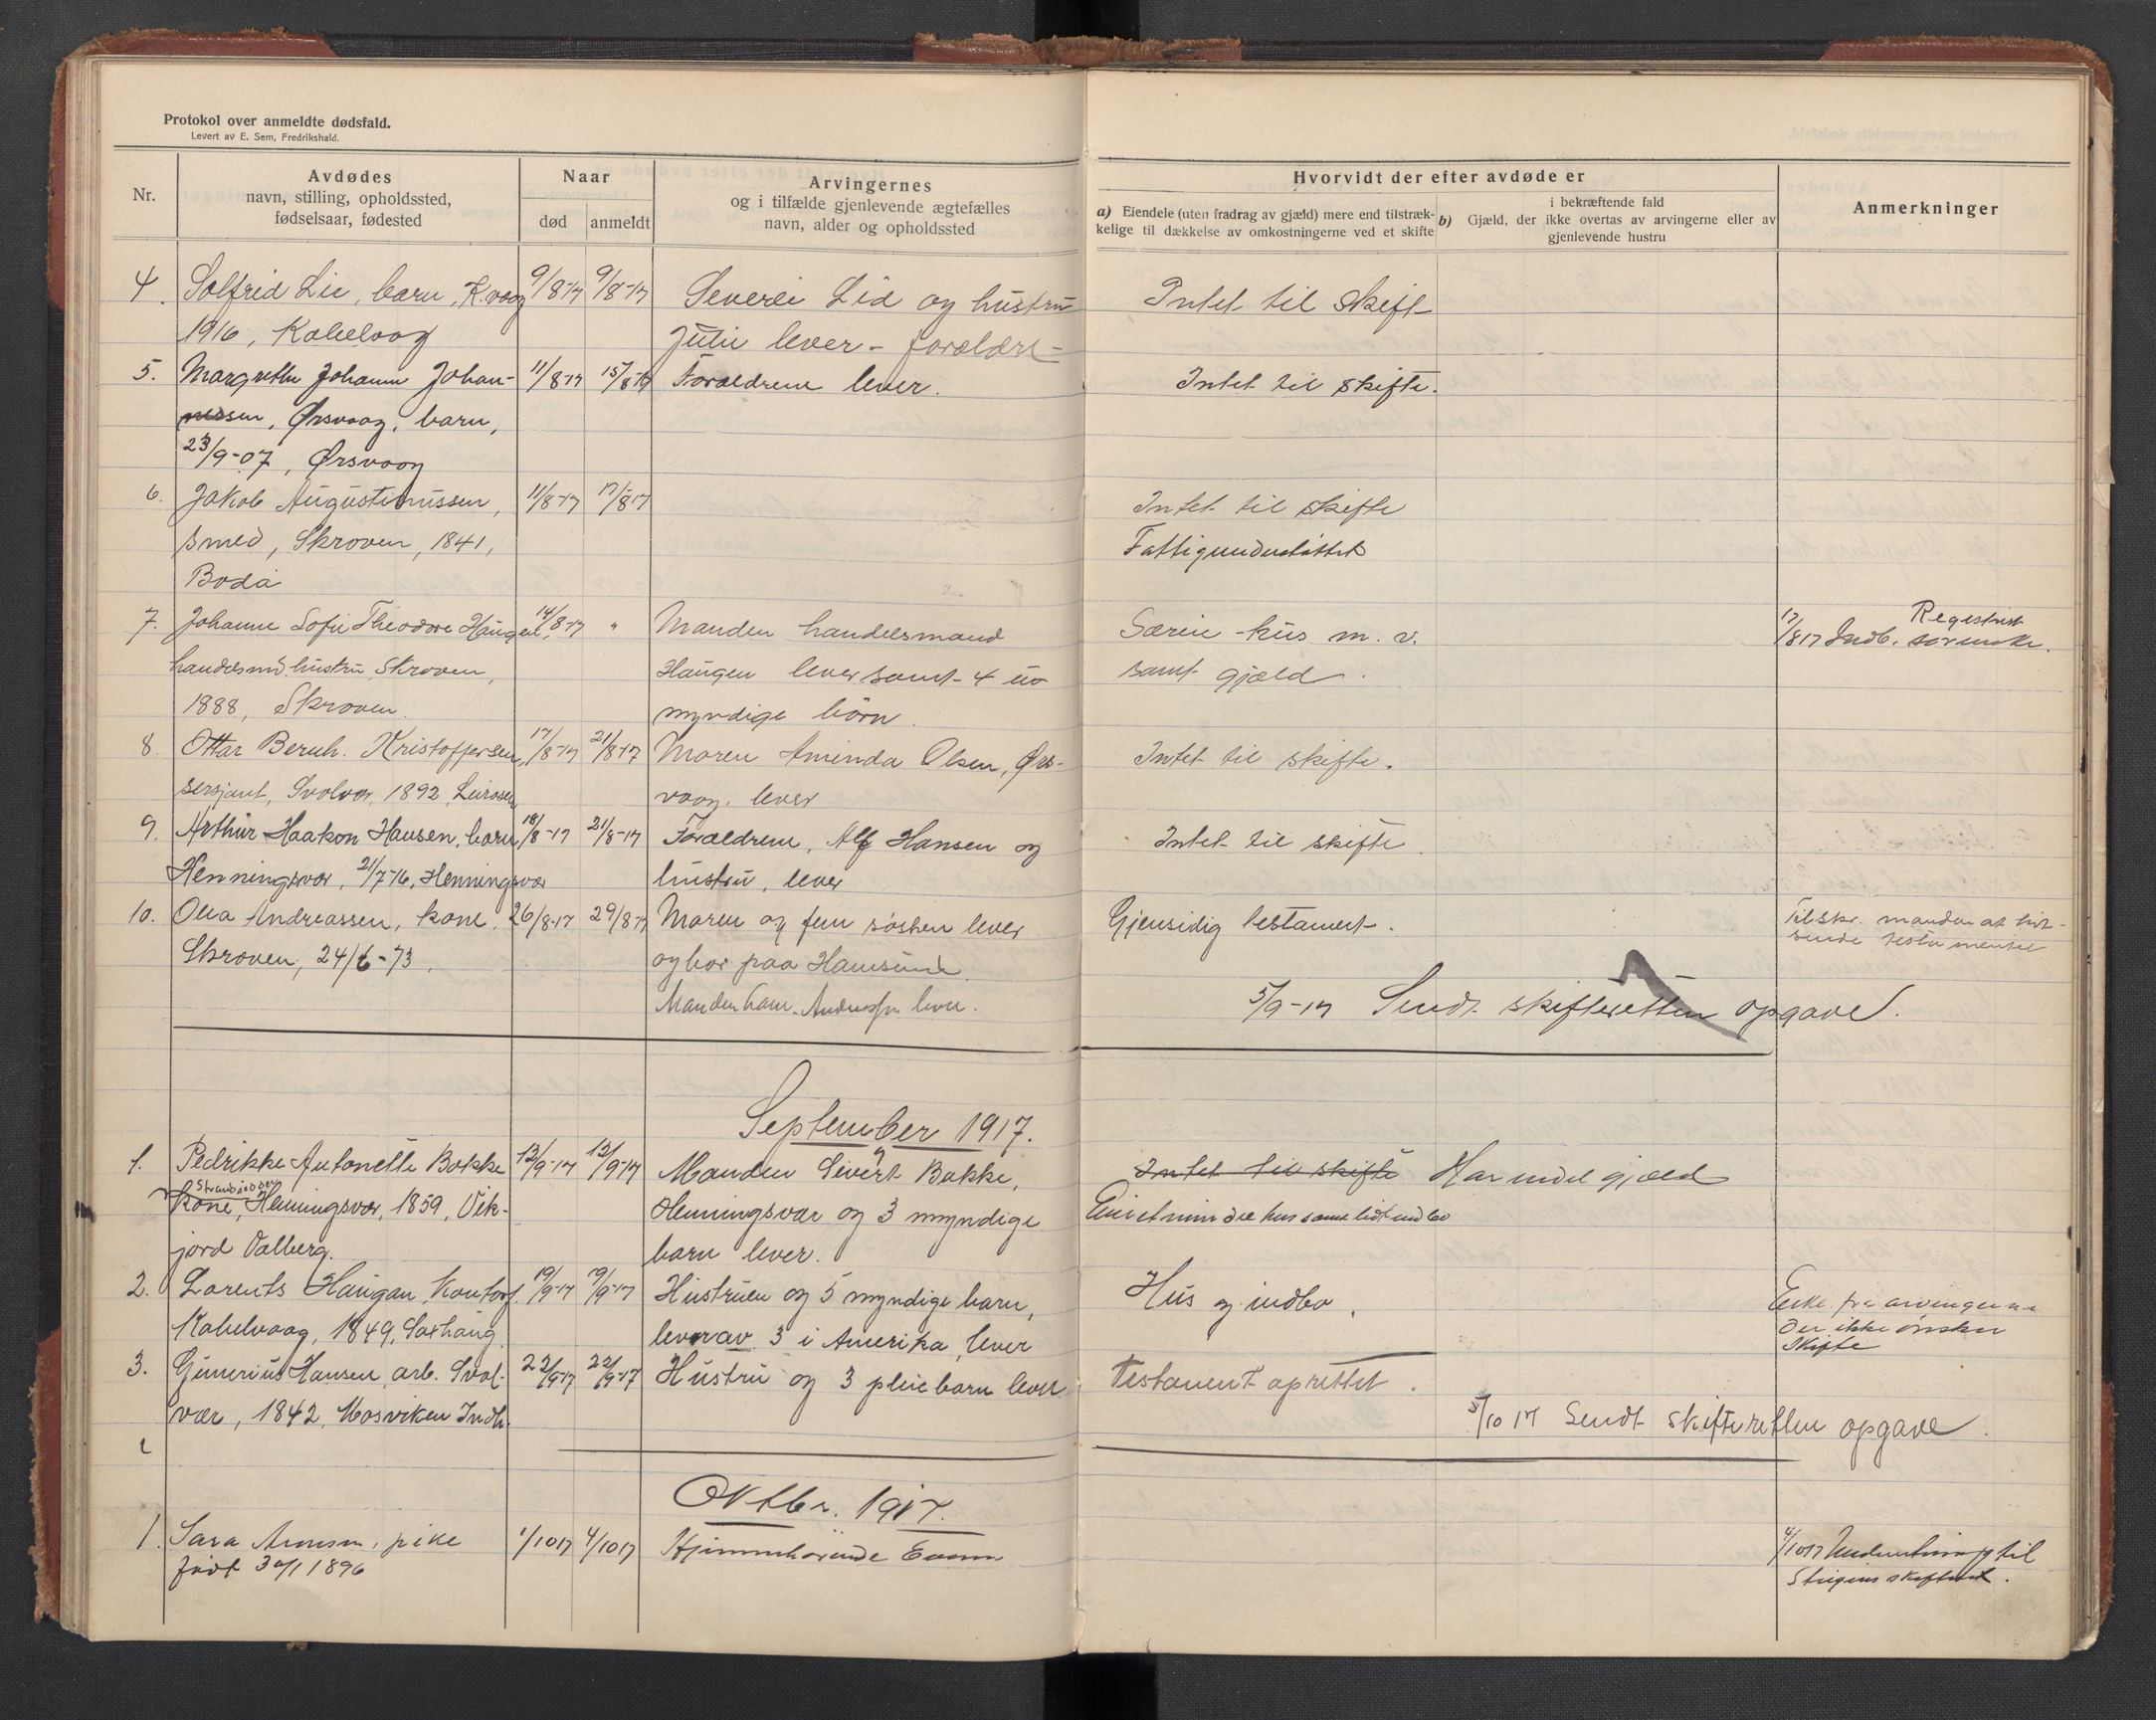 Protokol over anmeldte dødsfald.
Levert av E. Sem, Fredrikshald.
Nr.
Avdødes
navn, stilling, opholdssted,
fødselsaar, fødested
Naar
død
anmeldt
Arvingernes
og i tilfælde gjenlevende ægtefælles
navn, alder og opholdssted
Hvorvidt der efter avdøde er
a) Eiendele (uten fradrag av gjæld) mere end tilstræk-
kelige til dækkelse av omkostningerne ved et skifte
b) i bekræftende fald
Gjæld, der ikke overtas av arvingerne eller av
gjenlevende hustru
Anmerkninger
4. Solfrid Lie, barn, K.vaag 9/8-17 9/8-17 Lid og hustru Intet til skift
1916, Kabelvaag Julie lever - forældre
5. Margrethe Johanne Johan- 11/8-17 15/8-17 Forældrene lever. Intet til skifte.
nessen, Ørsvaag, barn,
23/9-07, Ørsvaag
6. Jakob Augustinussen, 11/8-17 17/8-17 Intet til skifte
smed, Skroven, 1841, Fattigunderstøttet
Bodø
7. Johanne Sofie Theodore Haugen, 14/8-17 " Manden handelsmand Særeie - hus m. v. 17/817 Indb. Registrert
handelsmd. hustru Skroven, Haugen lever samt 4 u- samt gjæld.
1888, Skroven. myndige børn.
8. Ottar Bernh. Kristoffersen, 17/8-17 21/8-17 Moren Aminda Olsen, Ørs- Intet til skifte.
sersjant, Svolvær, 1892, vaag. lever
9. Arthur Haakon Hansen, barn 18/8-17 21/8-17 Forældrene, Alf Hansen og Intet til skifte.
Henningsvær, 21/7-16, Henningsvær hustru, lever
10. Olea Andreassen, kone, 26/8-17 29/8-17 Moren og fem søsken lever Gjensidig testament. Tilskr. manden at ind-
Skroven, 24/6-73. og bor paa Hamsund. sende testamentet
Manden Andreassen lever. 5/9-17 Sendt skifteretten opgave.
September 1917.
1. Pedrikke Antonette Bakke 13/9-17 13/9-17 Manden Sivert Bakke, Intet til skifte Har endel gjæld
kone, Henningsvær, 1859, Vik- Henningsvær og 3 myndige Eier et mindre hus samt lidt indbo
jord Valberg. barn lever.
2. Lorents Haugan, Kontorf. 19/9-17 19/9-17 Hustruen og 5 myndige barn, Hus og indbo. Erkl. fra arvingerne
Kabelvaag, 1849, Saxhaug. hvorav 3 i Amerika, lever der ikke ønsker
skifte
3. Gunerius Hansen, arb. Svol- 22/9-17 22/9-17 Hustru og 3 pleiebarn lever Testament oprettet.
vær, 1842, Mosviken Indh. 5/10 17 Sendt skifteretten opgave.
Oktbr. 1917.
1. Sara pike 1/10 17 4/10 17 Hjemmehørende 4/10 17 Underretning til
født 30/1 1896 Steigens skifteret.